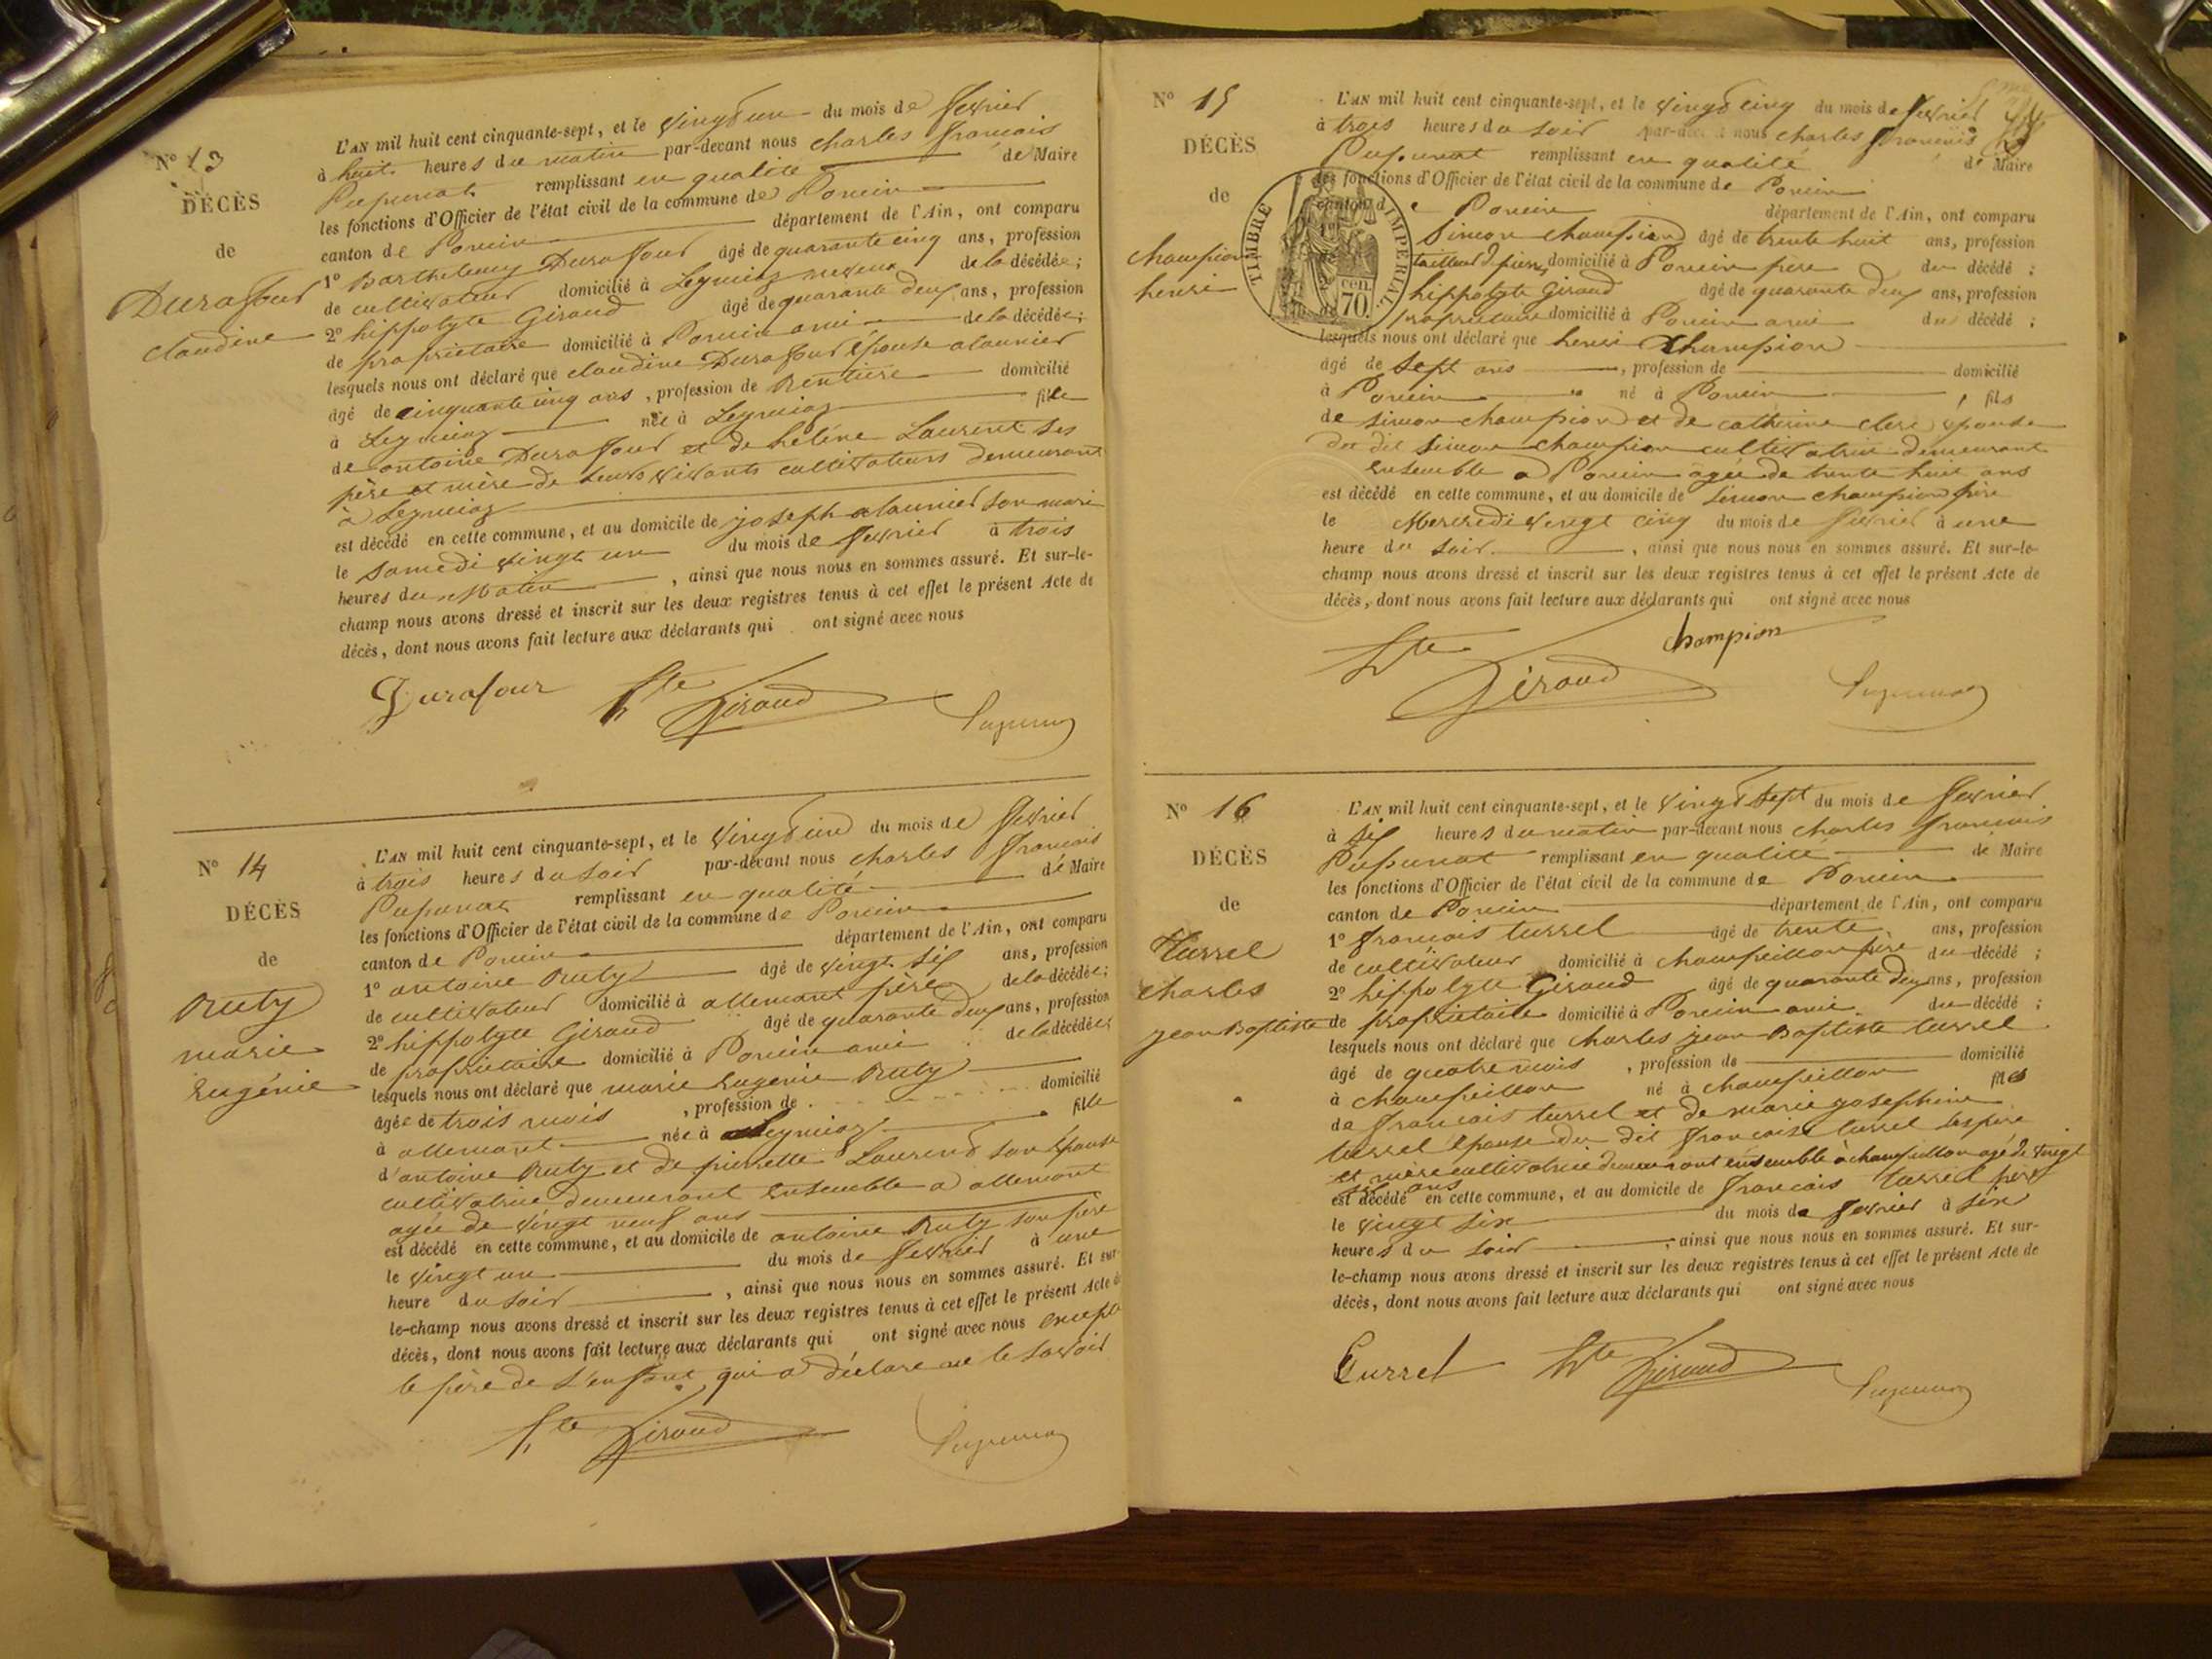 N° 13
DÉCÈS
de
Durafour
claudine
L'AN mil huit cent cinquante-sept, et le vingt un du mois de février
à huit heures du matin par-devant nous charles françois
Pupunat remplissant en qualité de Maire
les fonctions d'Officier de l'état civil de la commune de Poncin
canton de Poncin département de l'Ain, ont comparu
1° Barthelemy Durafour âgé de quarante cinq ans, profession
de cultivateur domicilié à Leymiaz neveux de la décédée;
2° hippolyte Giraud âgé de quarante deux ans, profession
de propriétaire domicilié à Poncin ami de la décédée;
lesquels nous ont déclaré que claudine Durafour épouse alaunier
âgé de cinquante cinq ans, profession de Rentière domicilié
à Leymiaz née à Leymiaz fille
de antoine Durafour et de hélène Laurent ses
père et mère de leurs vivants cultivateurs demeurant
à Leymiaz
est décédé en cette commune, et au domicile de joseph alaunier son mari
le samedi vingt un du mois de février à trois
heures du Matin, ainsi que nous nous en sommes assuré. Et sur-le-
champ nous avons dressé et inscrit sur les deux registres tenus à cet effet le présent Acte de
décès, dont nous avons fait lecture aux déclarants qui ont signé avec nous
Durafour hte Giraud Pupunat
N° 14
DÉCÈS
de
Ruty
marie
Eugénie
L'AN mil huit cent cinquante-sept, et le vingt un du mois de février
à trois heures du soir par-devant nous charles françois
Pupunat remplissant en qualité de Maire
les fonctions d'Officier de l'état civil de la commune de Poncin
canton de Poncin département de l'Ain, ont comparu
1° antoine Ruty âgé de vingt six ans, profession
de cultivateur domicilié à allemant père de la décédée;
2° hippolyte Giraud âgé de quarante deux ans, profession
de propriétaire domicilié à Poncin ami de la décédée
lesquels nous ont déclaré que marie Eugenie Ruty
âgée de trois mois, profession de domicilié
à allemant née à Leymiaz fille
d'antoine Ruty et de pierrette Laurent son épouse
cultivatrice demeurant ensemble a allemant
agée de vingt neuf ans
est décédé en cette commune, et au domicile de antoine Ruty son père
le vingt un du mois de février à une
heure du soir, ainsi que nous nous en sommes assuré. Et sur-
le-champ nous avons dressé et inscrit sur les deux registres tenus à cet effet le présent Acte de
décès, dont nous avons fait lecture aux déclarants qui ont signé avec nous excepté
le père de l'enfant qui a déclaré ne le savoir
hte Giraud Pupunat
N° 15
DÉCÈS
de
champion
henri
TIMBRE IMPERIAL
70 cen.
L'AN mil huit cent cinquante-sept, et le vingt cinq du mois de février
à trois heures du soir par-devant nous charles françois
Pupunat remplissant en qualité de Maire
les fonctions d'Officier de l'état civil de la commune de Poncin
canton de Poncin département de l'Ain, ont comparu
Simon champion âgé de trente huit ans, profession
tailleur d pierre domicilié à Poncin père du décédé;
hippolyte Giraud âgé de quarante deux ans, profession
propriétaire domicilié à Poncin ami du décédé;
lesquels nous ont déclaré que henri champion
âgé de sept ans, profession de domicilié
à Poncin né à Poncin, fils
de simon champion et de catherine clerc épouse
du dit simon champion cultivatrice demeurant
ensemble a Poncin agée de trente huit ans
est décédé en cette commune, et au domicile de simon champion père
le Mercredi vingt cinq du mois de février à une
heure du soir, ainsi que nous nous en sommes assuré. Et sur-le-
champ nous avons dressé et inscrit sur les deux registres tenus à cet effet le présent Acte de
décès, dont nous avons fait lecture aux déclarants qui ont signé avec nous
hte Giraud champion Pupunat
N° 16
DÉCÈS
de
Turrel
charles
jean Baptiste
L'AN mil huit cent cinquante-sept, et le vingt sept du mois de février
à six heures du matin par-devant nous charles françois
Pupunat remplissant en qualité de Maire
les fonctions d'Officier de l'état civil de la commune de Poncin
canton de Poncin département de l'Ain, ont comparu
1° françois turrel âgé de trente ans, profession
de cultivateur domicilié à champeillon père du décédé;
2° hippolyte Giraud âgé de quarante deux ans, profession
de propriétaire domicilié à Poncin ami du décédé;
lesquels nous ont déclaré que charles jean Baptiste turrel
âgé de quatre mois, profession de domicilié
à champeillon né à champeillon fils
de françois turrel et de marie josephine
turrel épouse du dit françois turrel ses père
et mère cultivatrice demeurant ensemble à champeillon agé de vingt
six ans
est décédé en cette commune, et au domicile de françois turrel père
le vingt six du mois de février à six
heures du soir, ainsi que nous nous en sommes assuré. Et sur-
le-champ nous avons dressé et inscrit sur les deux registres tenus à cet effet le présent Acte de
décès, dont nous avons fait lecture aux déclarants qui ont signé avec nous
Turrel hte Giraud Pupunat